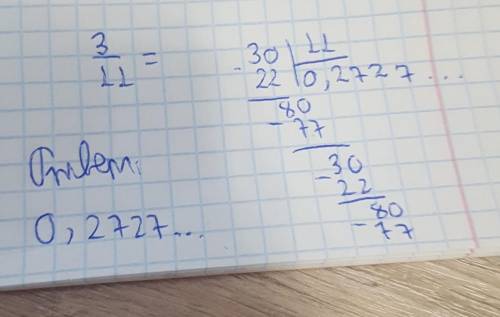 3/11 =
30 | 11
- 22 | 0,2727...
80
- 77
30
- 22
80
- 77
Ответ:
0,2727...